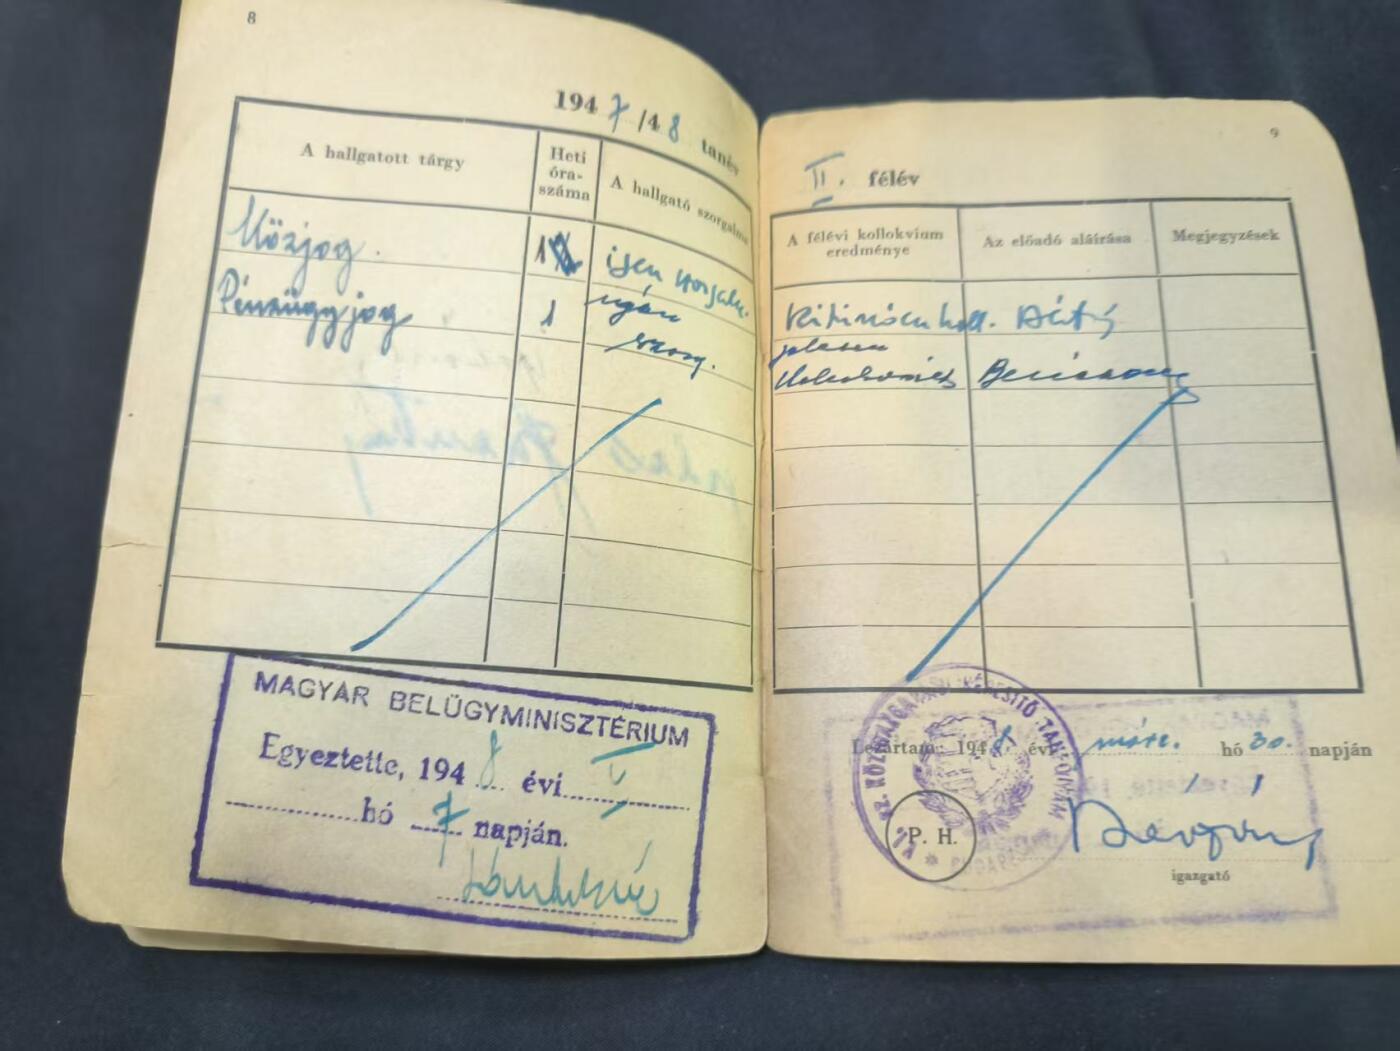 8
1947/48 tanév
A hallgatott tárgy
Heti
óra-
száma
A hallgató szorgalma
Közjog.
1
igen szorgalm.
Pénzügyjog
1
igen
szorg.
MAGYAR BELÜGYMINISZTÉRIUM
Egyeztette, 1948 évi I
hó 7 napján.
9
II. félév
A félévi kollokvium
eredménye
Az előadó aláírása
Megjegyzések
Kitünően koll.
jelesen
Lezártam: 1948 évi márc. hó 30. napján
KÖZIGAZGATÁSI KÉPESÍTŐ TANFOLYAM
P. H.
igazgató